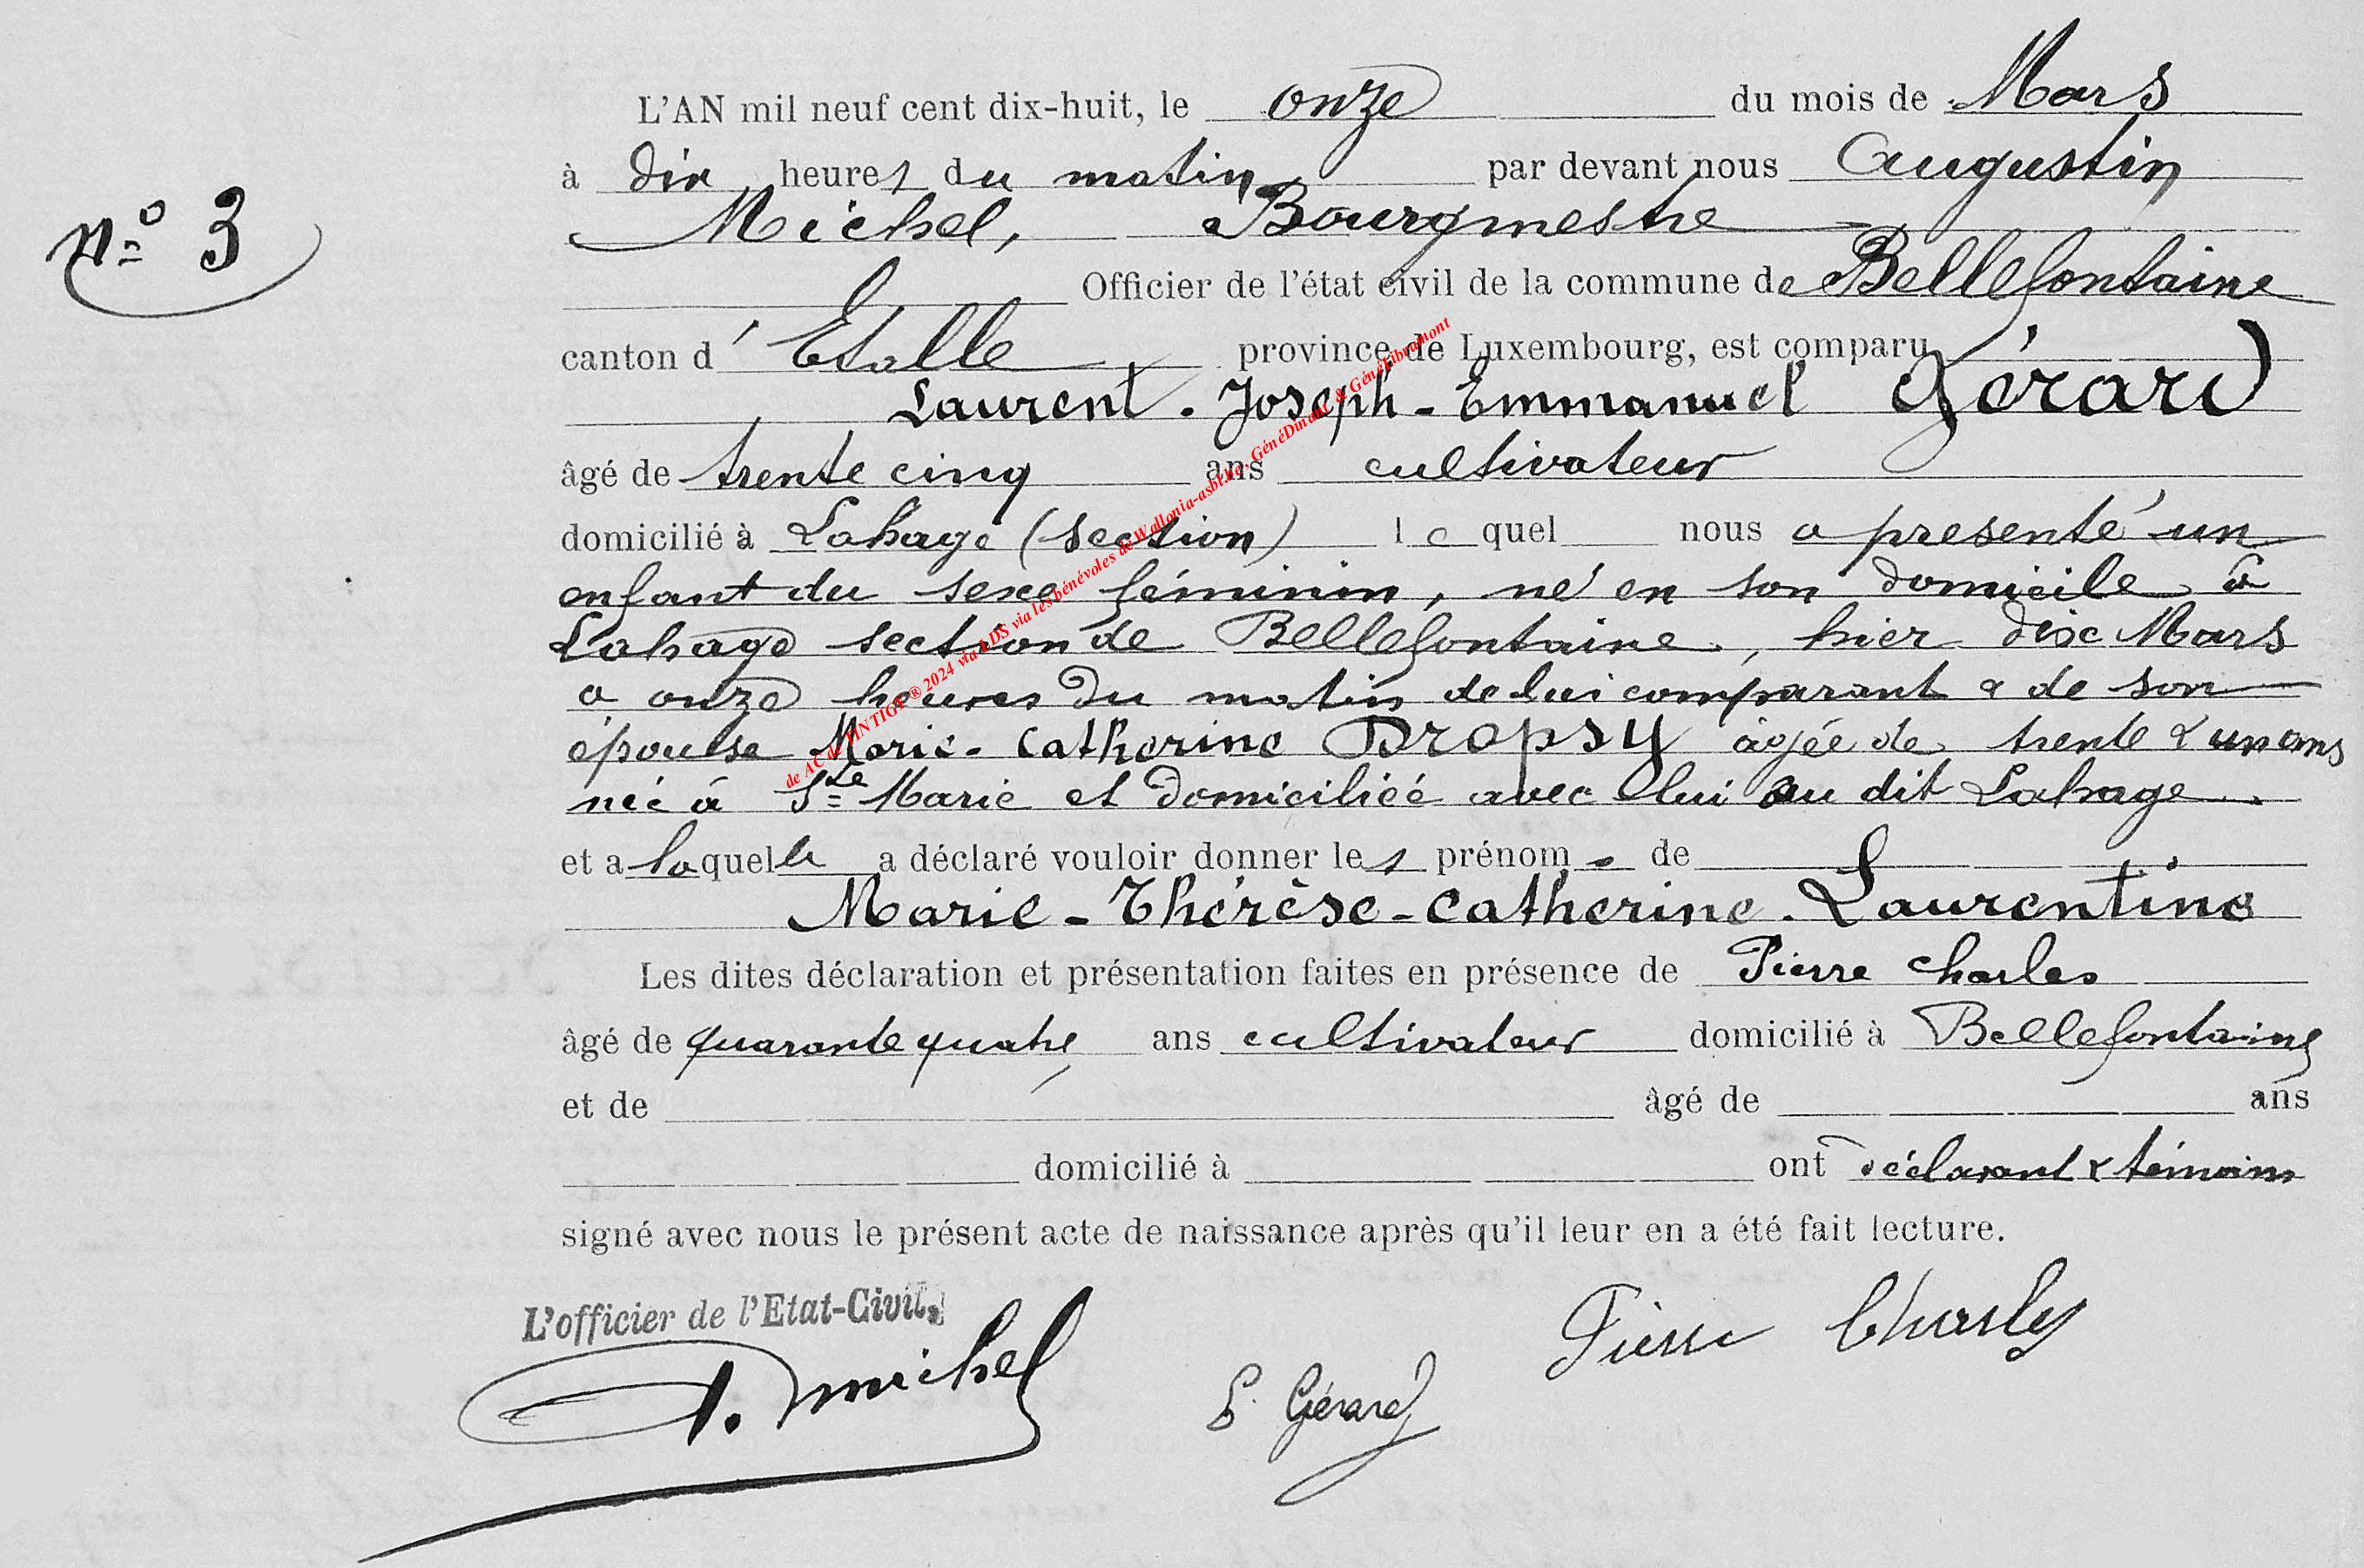 L'AN mil neuf cent dix-huit, le onze du mois de Mars
à dix heures du matin par devant nous Augustin
Nº 3
Michel, Bourgmestre
Officier de l'état civil de la commune de Bellefontaine
canton d' Etalle province de Luxembourg, est comparu
Laurent - Joseph - Emmanuel Gérard
âgé de trente cinq ans cultivateur
domicilié à Lahage (section) le quel nous a presenté un
enfant du sexe féminin, né en son domicile à
Lahage section de Bellefontaine, hier dix Mars
a onze heures du matin de lui comparant & de son
épouse Marie - Catherine Dropsy âgée de trente & un ans
née à Ste Marie et domiciliée avec lui au dit Lahage.
et a laquelle a déclaré vouloir donner les prénoms de
Marie - Thérèse - Catherine - Laurentine
Les dites déclaration et présentation faites en présence de Pierre Charles
âgé de quarante quatre ans cultivateur domicilié à Bellefontaine
et de âgé de ans
domicilié à ont déclarant & témoins
signé avec nous le présent acte de naissance après qu'il leur en a été fait lecture.
L'officier de l'Etat-Civil,
A. Michel
Gérard
Pierre Charles
de AC de TINTIGY ® 2024 via LDS via les bénévoles de Wallonia-asbl.be, GénéDinant & GénéLibramont